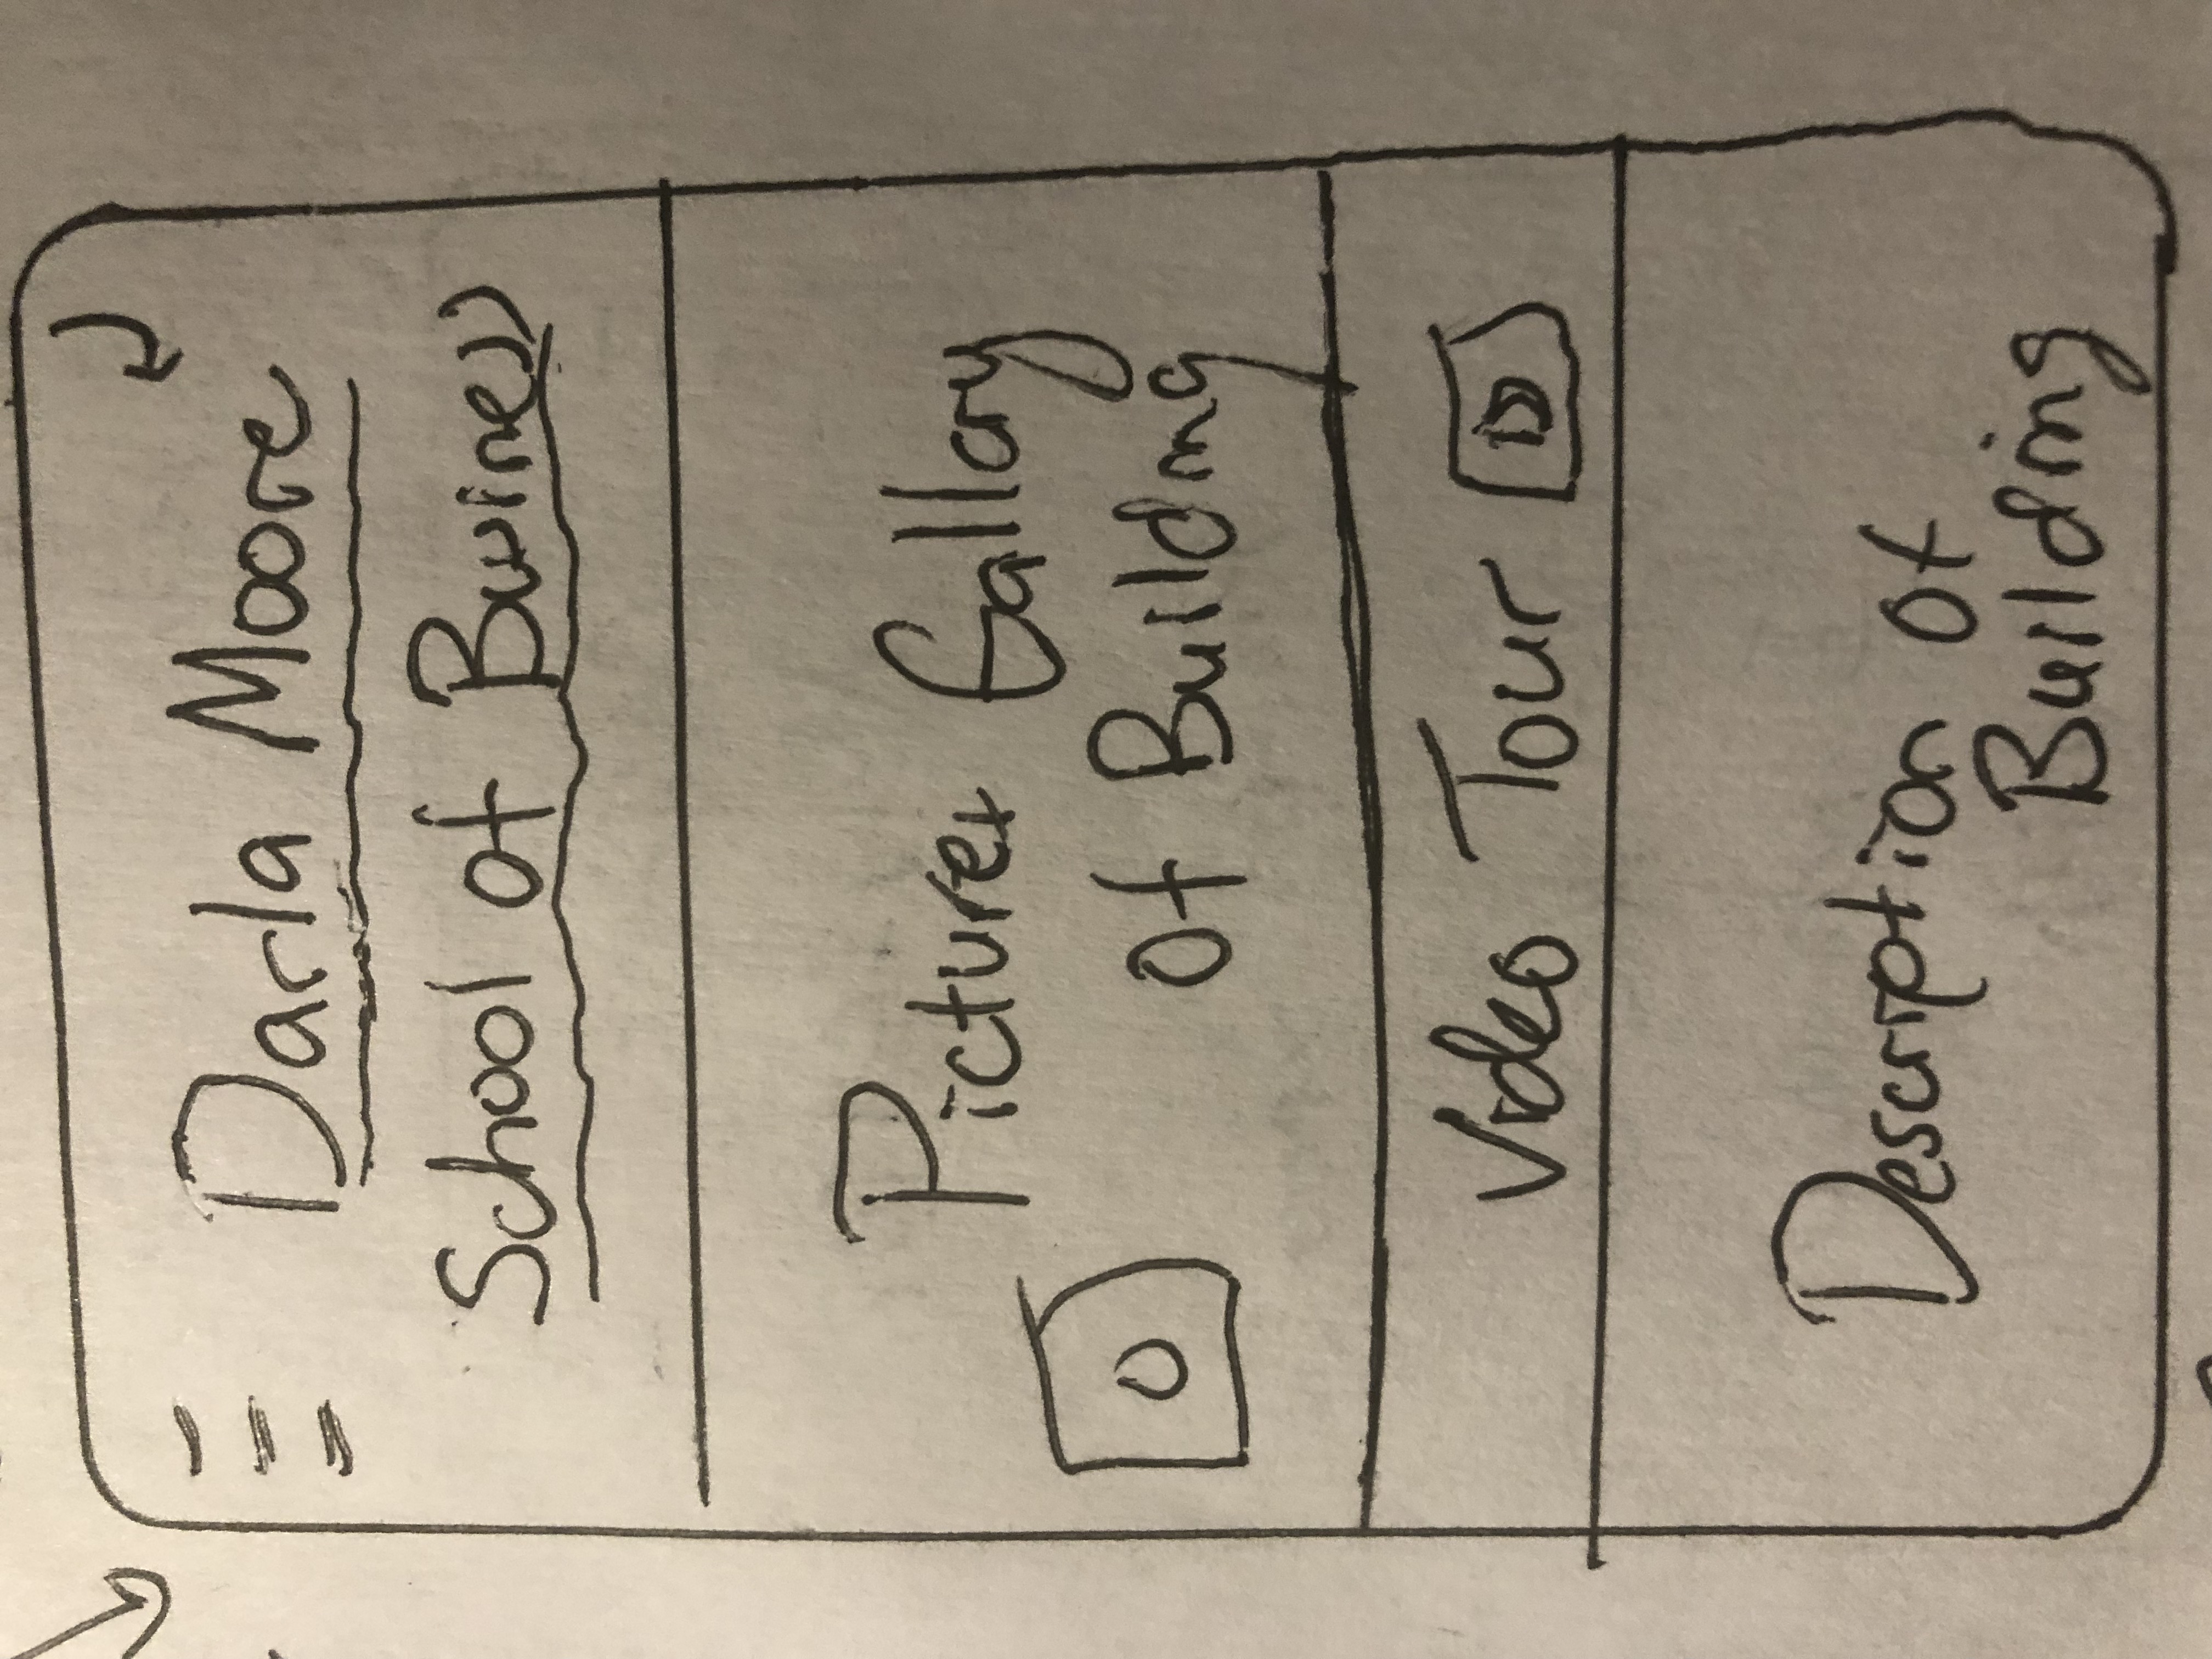 Darla Moore
School of Business
Pictures Gallery
of Building
Video Tour
Description of
Building